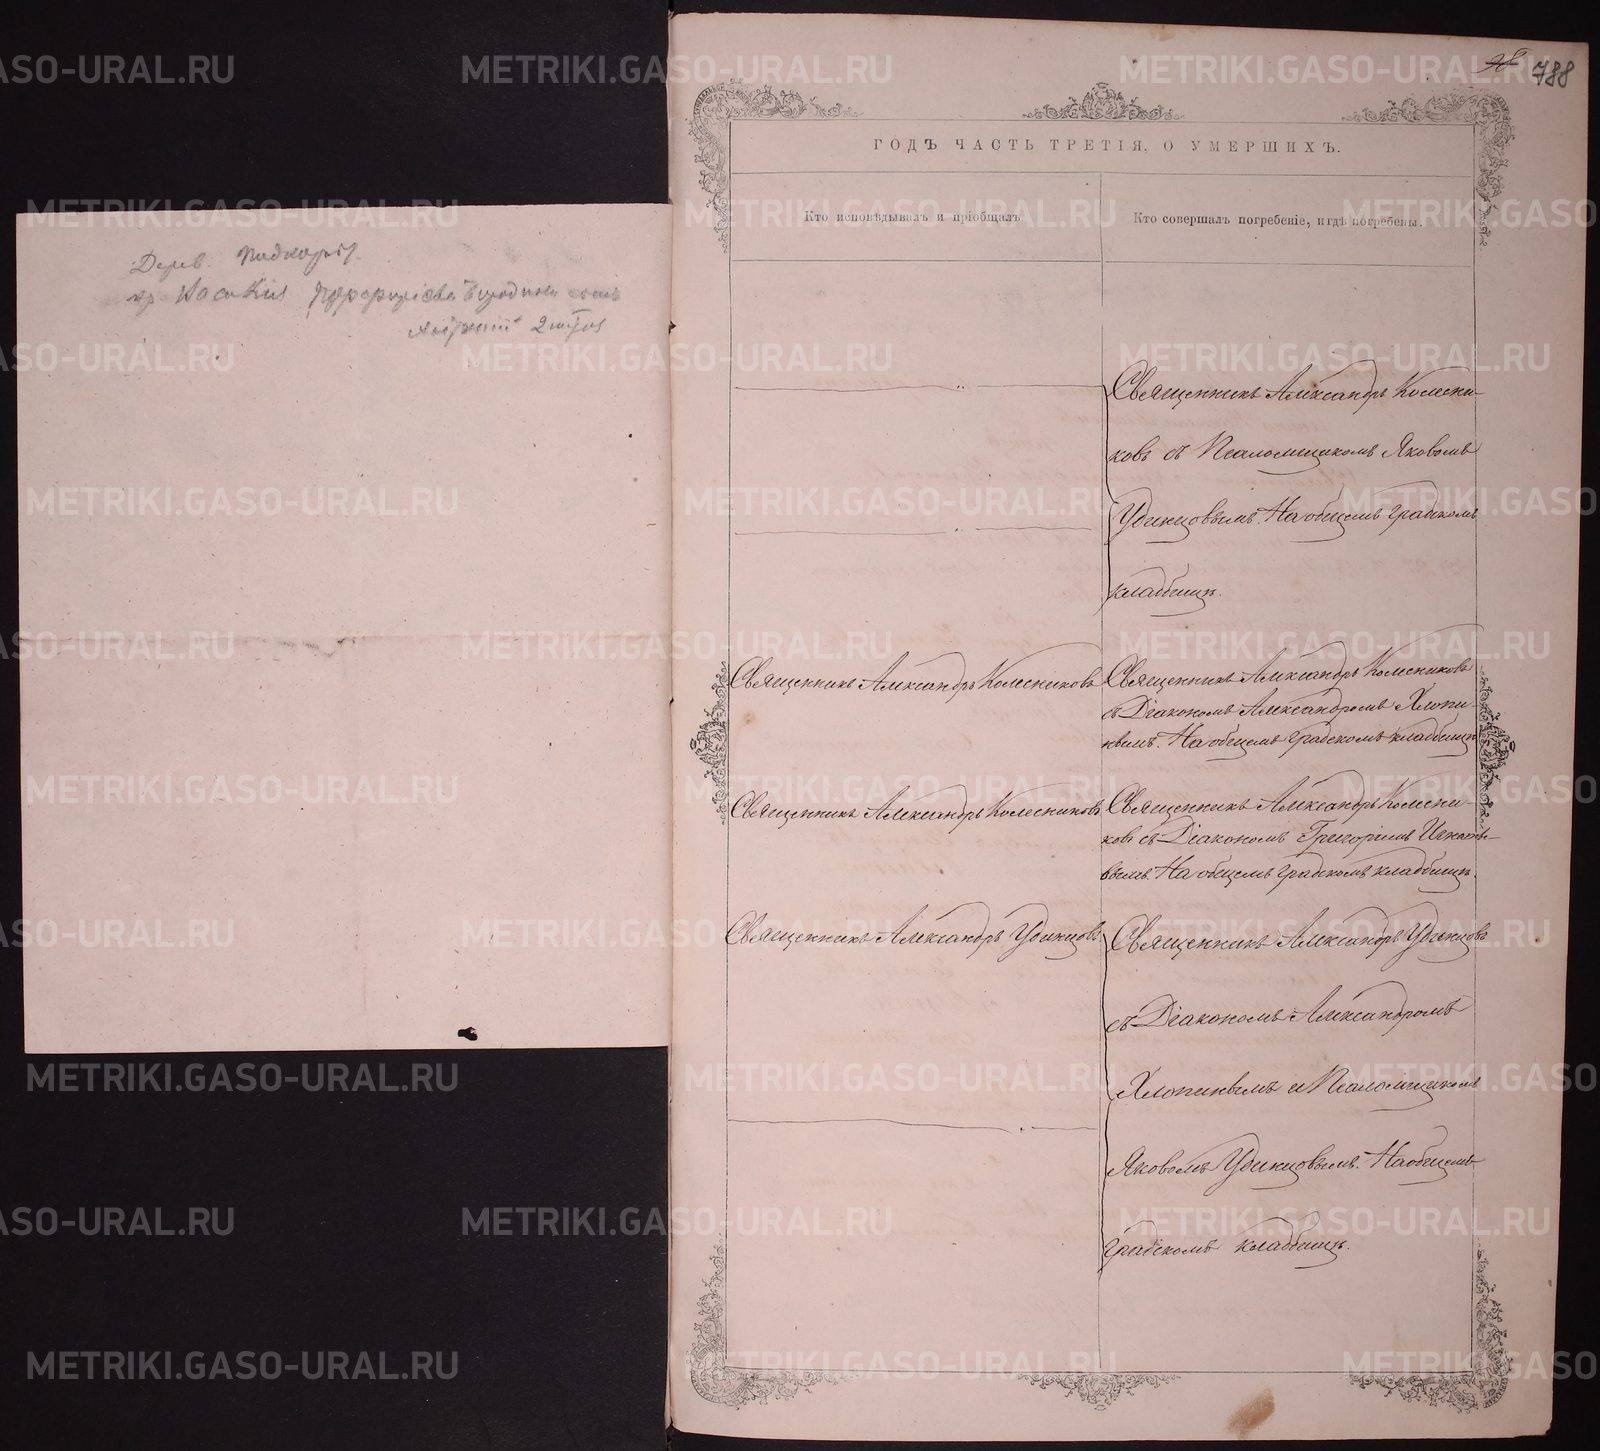 788
ГОДЪ ЧАСТЬ ТРЕТІЯ, О УМЕРШИХЪ.
Кто исповѣдывалъ и пріобщалъ
Кто совершалъ погребеніе, и гдѣ погребены.
Дерев.
Священникъ Александръ Колесни-
ковъ съ Псаломщикомъ Яковомъ
Удинцовымъ. На общемъ градскомъ
кладбищѣ.
Священникъ Александръ Колесниковъ
Священникъ Александръ Колесниковъ
съ Діакономъ Александромъ Хлопи-
нымъ. На общемъ градскомъ кладбищѣ
Священникъ Александръ Колесниковъ
Священникъ Александръ Колесни-
ковъ съ Діакономъ Григоріемъ Игнать-
вымъ. На общемъ градскомъ кладбищѣ.
Священникъ Александръ Удинцовъ
Священникъ Александръ Удинцовъ
съ Діакономъ Александромъ
Хлопинымъ и Псаломщикомъ
Яковомъ Удинцовымъ. На общемъ
градскомъ кладбищѣ.
METRIKI.GASO-URAL.RU